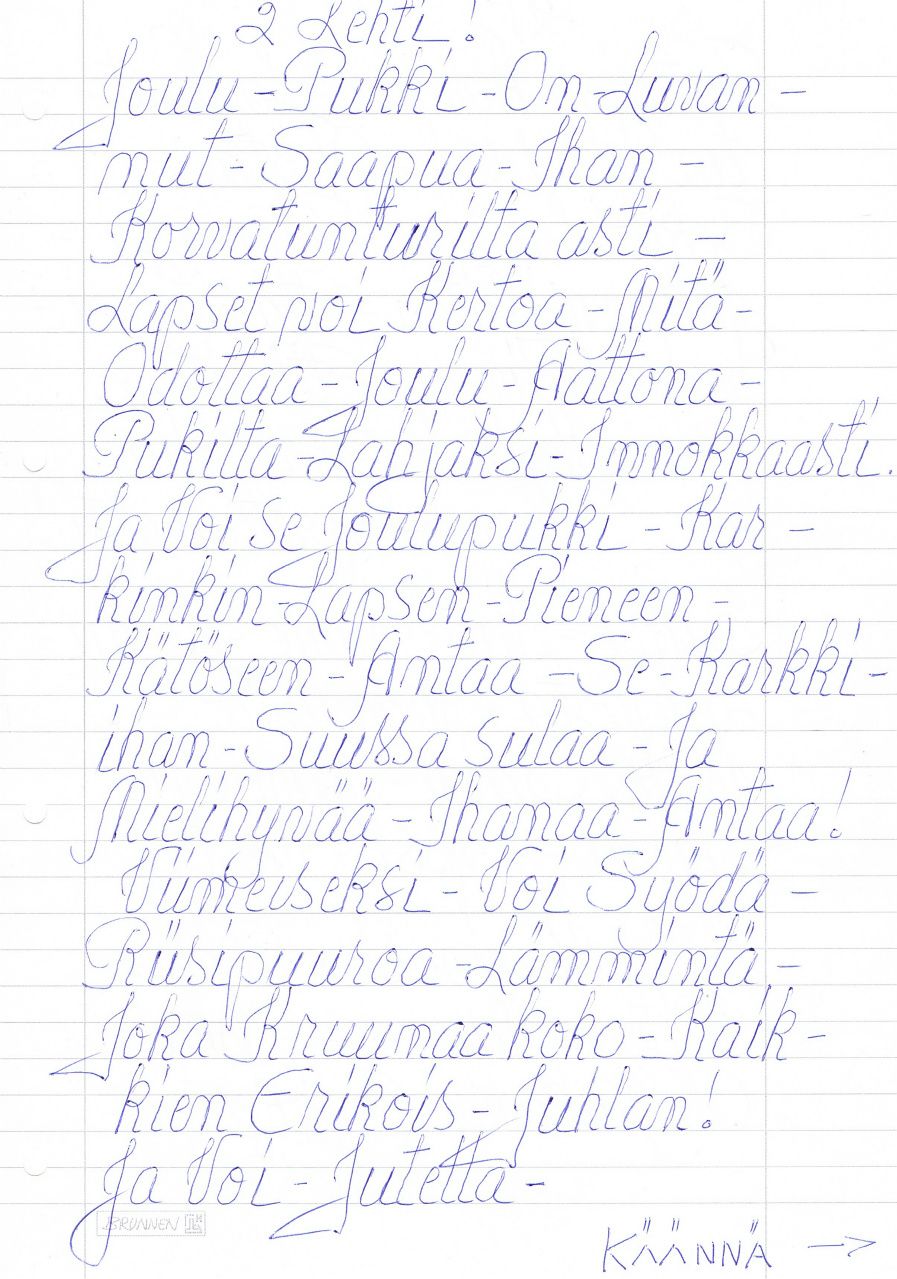 2 Lehti!
Joulu - Pukki - On - Luvan -
nut - Saapua - Ihan -
Korvatunturilta asti -
Lapset voi Kertoa - Mitä -
Odottaa - Joulu - Aattona -
Pukilta - Lahjaksi - Innokkaasti.
Ja Voi se Joulupukki - Kar -
kinkin - Lapsen - Pieneen -
Kätöseen - Antaa - Se - Karkki -
ihan - Suussa sulaa - Ja
Mielihyvää - Ihanaa - Antaa!
Viimeiseksi - Voi Syödä -
Riisipuuroa - Lämmintä -
Joka Kruunaa koko - Kaik -
kien Erikois - Juhlan!
Ja Voi - Jutella -
BRUNNEN
KÄÄNNÄ →